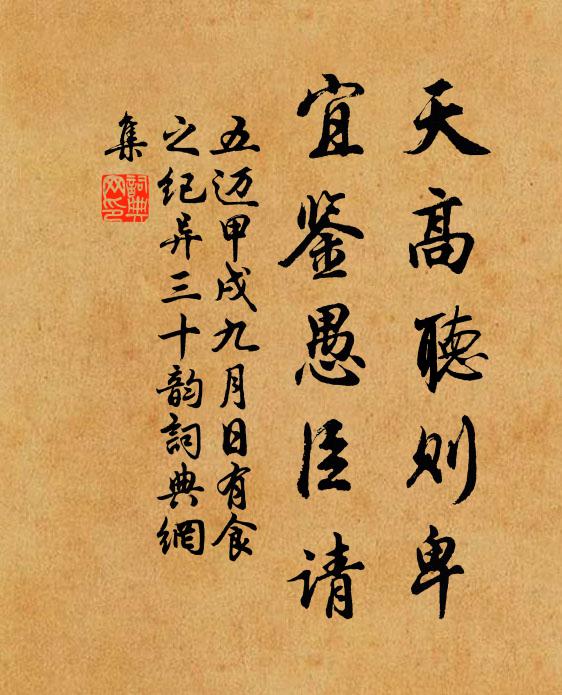 天高聽则卑
宜鉴愚臣请
五迈甲戌九月日有食
之纪异三十韵詞典網
集
詞典
网印